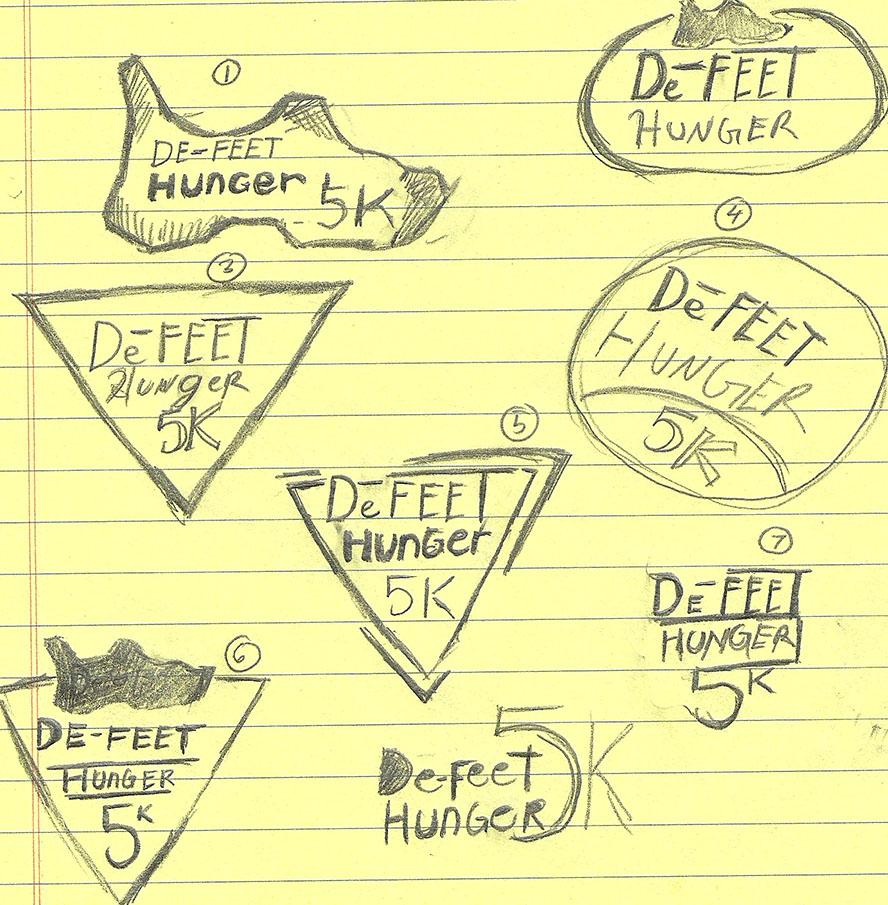 1
DE-FEET
Hunger
5K
De-FEET
HUNGER
3
De-FEET
Hunger
5K
4
De-FEET
HUNGER
5K
5
De-FEET
Hunger
5K
6
DE-FEET
HUnGER
5K
7
DE-FEET
HUNGER
5K
De-Feet
HUnGeR
5K